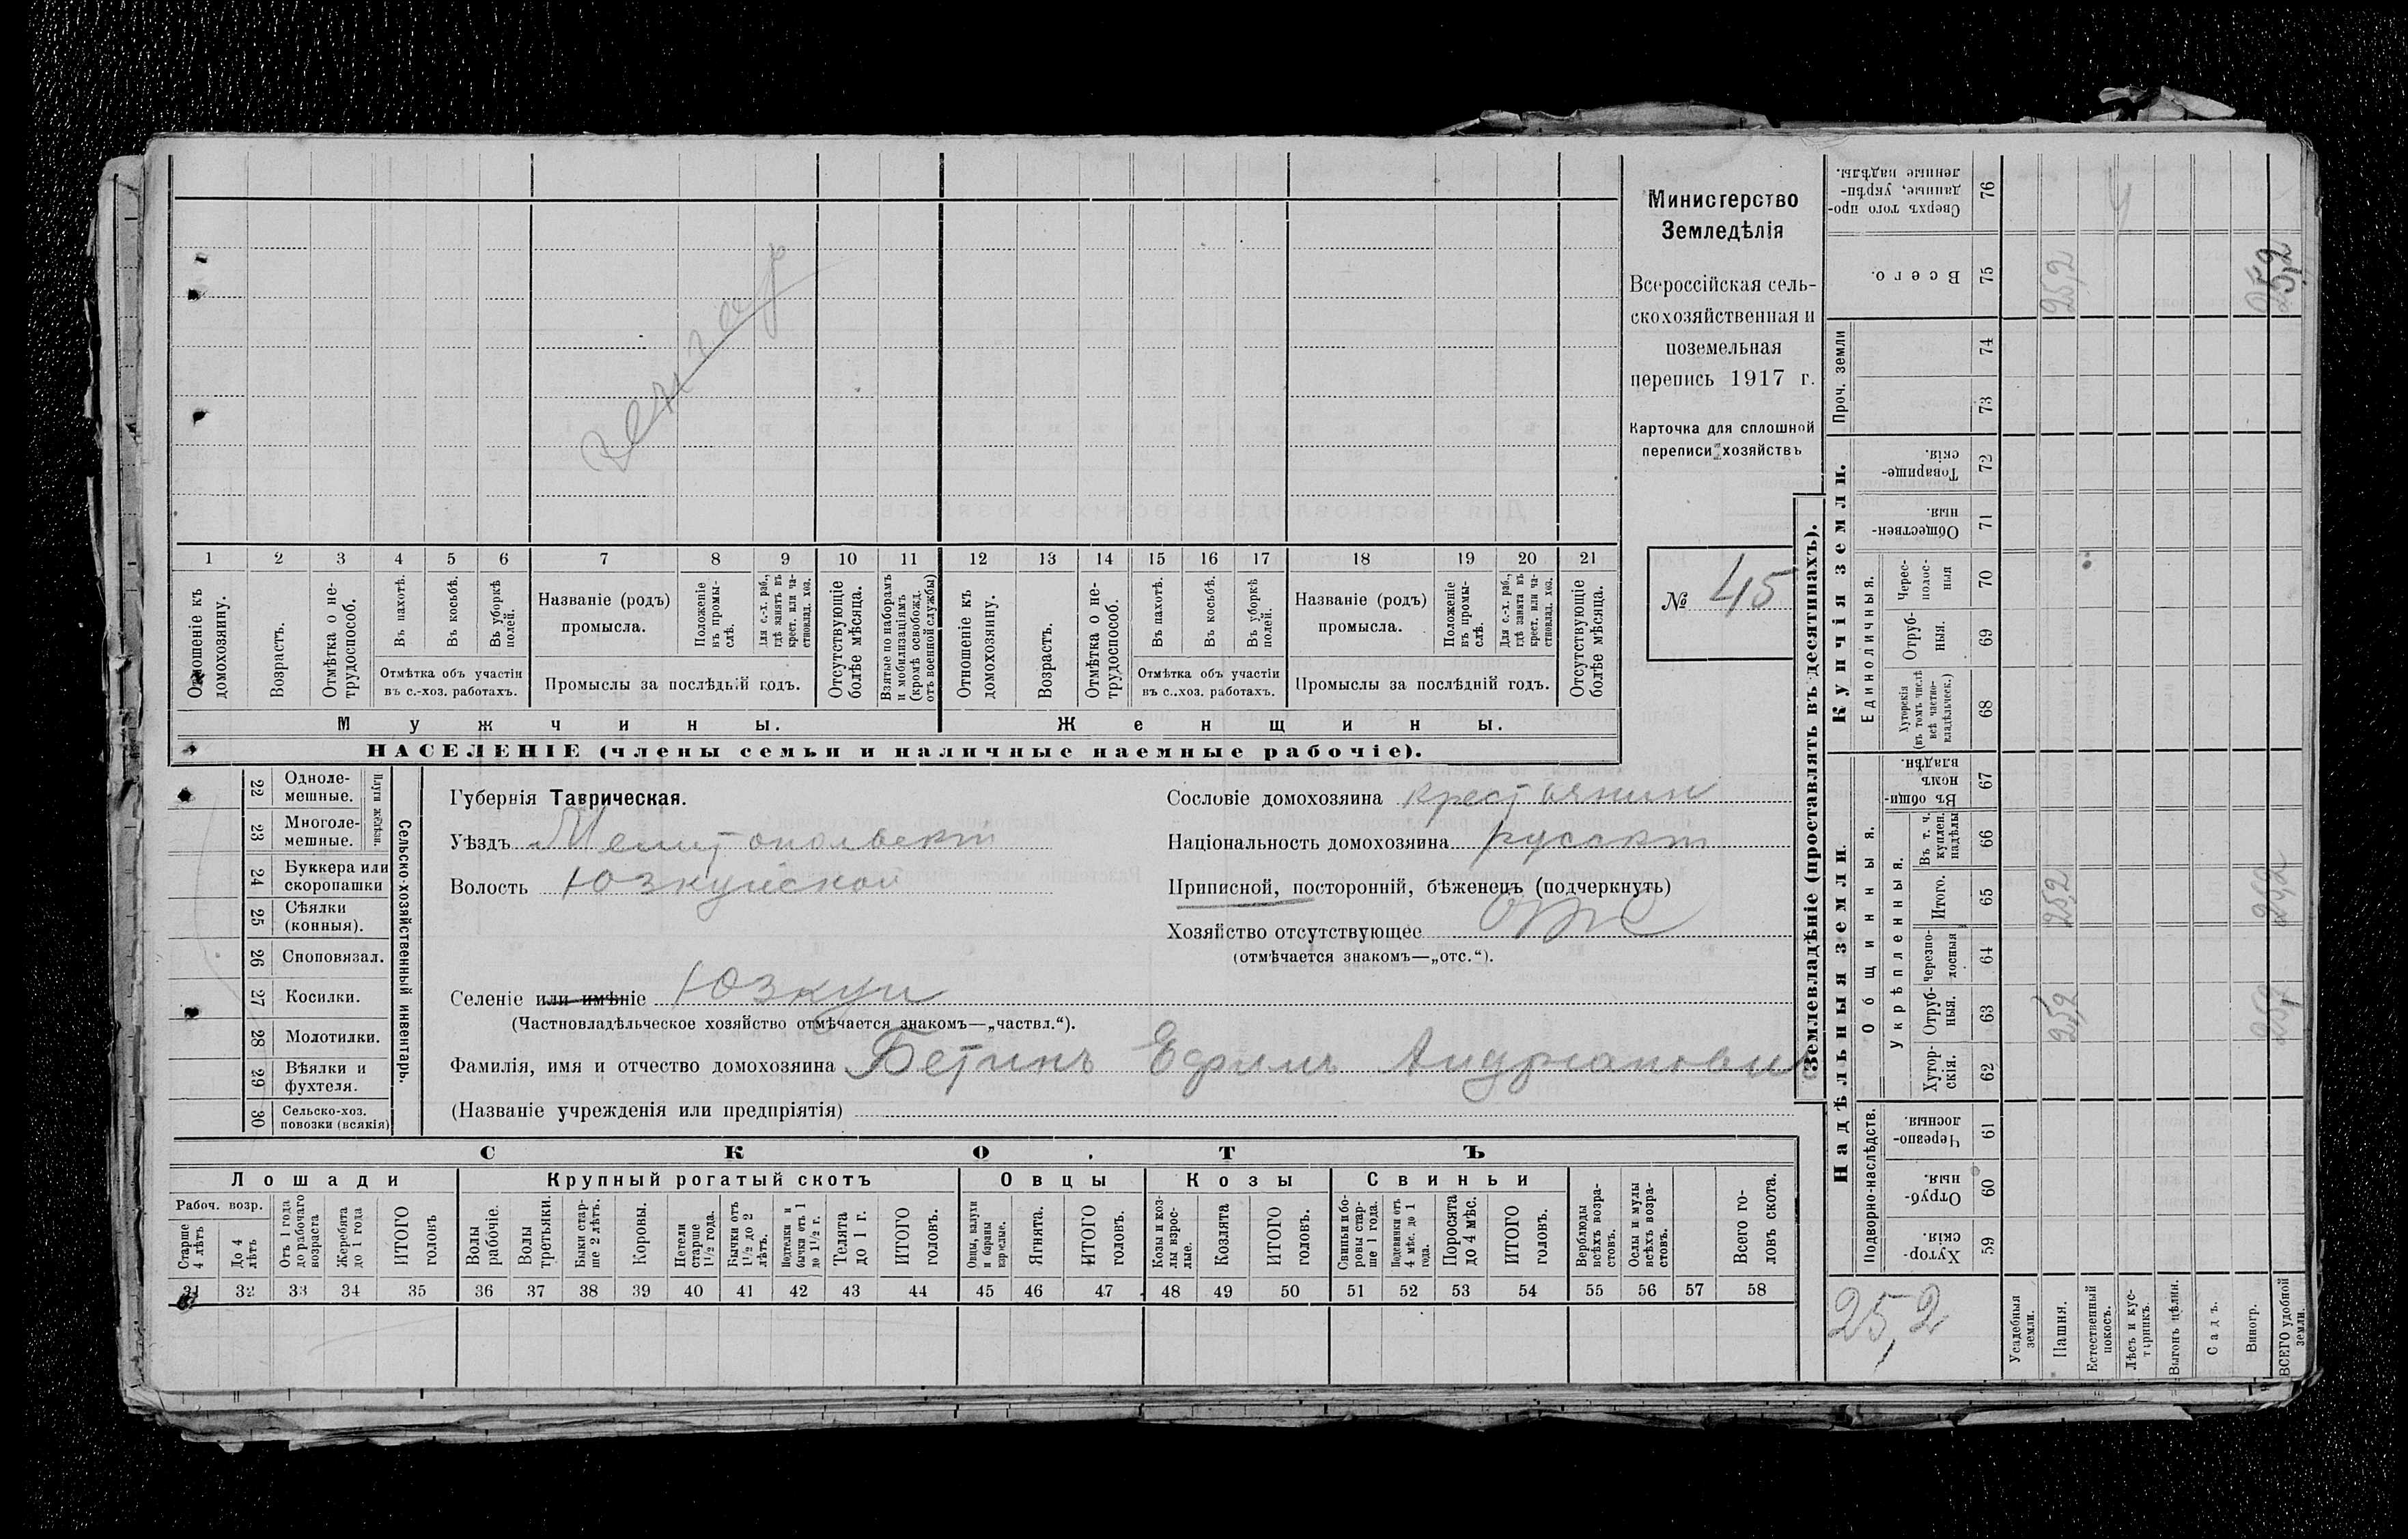 Министерство
Земледѣлія
Всероссійская сель-
скохозяйственная и
поземельная
перепись 1917 г.
Карточка для сплошной
переписи хозяйствъ
№ 45
1 2 3 4 5 6 7 8 9 10 11 12 13 14 15 16 17 18 19 20 21
Отношеніе къ домохозяину.
Возрастъ.
Отмѣтка о не-трудоспособ.
Въ пахотѣ.
Въ косьбѣ.
Въ уборкѣ полей.
Отмѣтка объ участіи
въ с.-хоз. работахъ.
Названіе (родъ)
промысла.
Положеніе въ промы-слѣ.
Для с.-х. раб., гдѣ занятъ въ крест. или ча-стновлад. хоз.
Промыслы за послѣдній годъ.
Отсутствующіе болѣе мѣсяца.
Взятые по наборамъ и мобилизаціямъ (кромѣ освобожд. отъ военной службы)
Отношеніе къ домохозяину.
Возрастъ.
Отмѣтка о не-трудоспособ.
Въ пахотѣ.
Въ косьбѣ.
Въ уборкѣ полей.
Отмѣтка объ участіи
въ с..хоз. работахъ.
Названіе (родъ)
промысла.
Положеніе въ промы-слѣ.
Для с.-х. раб., гдѣ занята въ крест. или ча-стновлад. хоз.
Промыслы за послѣдній годъ.
Отсутствующіе болѣе мѣсяца.
Мужчины.
Женщины.
НАСЕЛЕНІЕ (члены семьи и наличные наемные рабочіе).
22 Одноле-мешные.
23 Многоле-мешные.
Плуги желѣзн.
24 Буккера или скоропашки
25 Сѣялки (конныя).
26 Сноповязал.
27 Косилки.
28 Молотилки.
29 Вѣялки и фухтеля.
30 Сельско-хоз. повозки (всякія)
Сельско-хозяйственный инвентарь.
Губернія Таврическая.
Уѣздъ Мелитопольскій
Волость Юзкуйской
Селеніе или имѣніе Юзкуи
(Частновладѣльческое хозяйство отмѣчается знакомъ—„частвл.“).
Фамилія, имя и отчество домохозяина Бетинъ Ефимъ Андріанович
(Названіе учрежденія или предпріятія)
Сословіе домохозяина крестьянин
Національность домохозяина русскій
Приписной, посторонній, бѣженецъ (подчеркнуть)
Хозяйство отсутствующее отс
(отмѣчается знакомъ—„отс.“).
СКОТЪ
Лошади
Рабоч. возр.
Старше 4 лѣтъ
До 4 лѣтъ
Отъ 1 года до рабочаго возраста
Жеребята до 1 года
ИТОГО головъ
Крупный рогатый скотъ
Волы рабочіе.
Волы третьяки.
Быки стар-ше 2 лѣтъ.
Коровы.
Нетели старше 1½ года.
Бычки отъ 1½ до 2 лѣтъ.
Подтелки и бычки отъ 1 до 1½ г.
Телята до 1 г.
ИТОГО головъ.
Овцы
Овцы, валухи и бараны взрослые.
Ягнята.
ИТОГО головъ.
Козы
Козы и коз-лы взрос-лые.
Козлята
ИТОГО головъ.
Свиньи
Свиньи и бо-ровы стар-ше 1 года.
Подсвинки отъ 4 мѣс. до 1 года.
Поросята до 4 мѣс.
ИТОГО головъ.
Верблюды всѣхъ возра-стовъ.
Ослы и мулы всѣхъ возра-стовъ.
Всего го-ловъ скота.
31 32 33 34 35 36 37 38 39 40 41 42 43 44 45 46 47 48 49 50 51 52 53 54 55 56 57 58
Землевладѣніе (проставлять въ десятинахъ).
Купчія земли.
Надѣльныя земли.
Сверхъ того про-данные, укрѣп-ленные надѣлы. 76
Всего. 75 25,2 25,2
Проч. земли 74 73
Товарище-скія. 72
Обществен-ныя. 71
Единоличныя.
Черес-полос-ныя 70
Отруб-ныя. 69
Хуторскія (въ томъ числѣ всѣ частно-владѣльческ.) 68
Общинныя.
Въ общи-номъ владѣн. 67
Укрѣпленныя.
Въ т. ч. куплен. надѣлы 66
Итого. 65 25,2 25,2
Черезпо-лосныя 64
Отруб-ныя. 63 25,2 25,2
Хутор-скія. 62
Подворно-наслѣдств.
Черезпо-лосныя 61
Отруб-ныя. 60
Хутор-скія. 59
25,2
Усадебныя земли.
Пашня.
Естественный покосъ.
Лѣсъ и кус-тарникъ.
Выгонъ цѣлин.
Садъ.
Виногр.
ВСЕГО удобной земли.